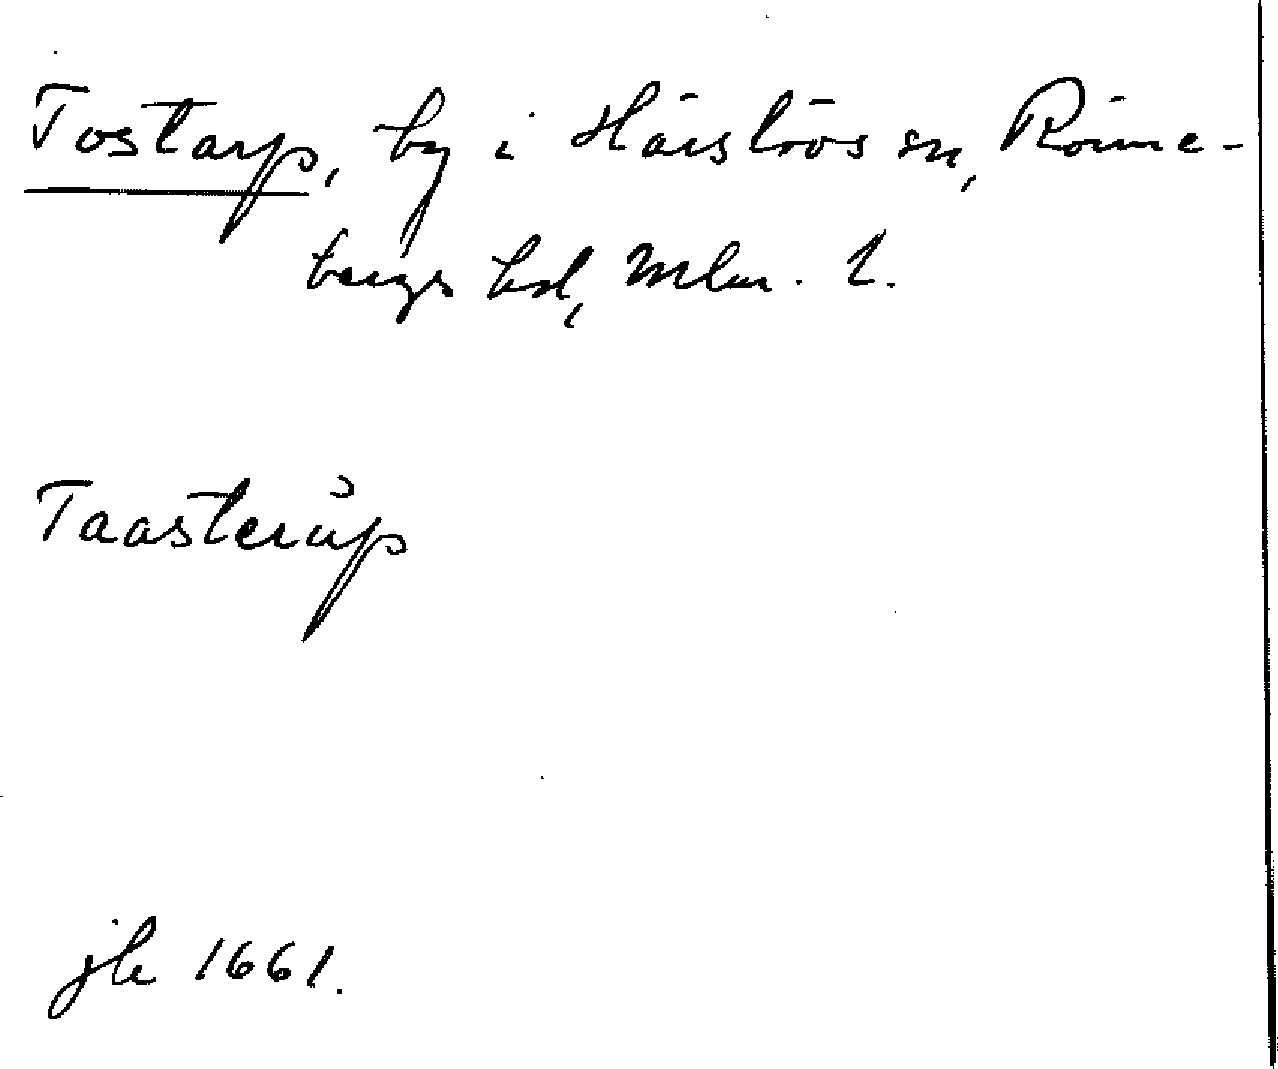 Tostarp, by i Härslövs sn, Rönne-
bergs hd, Mlm. l.
Taasterup
jb 1661.